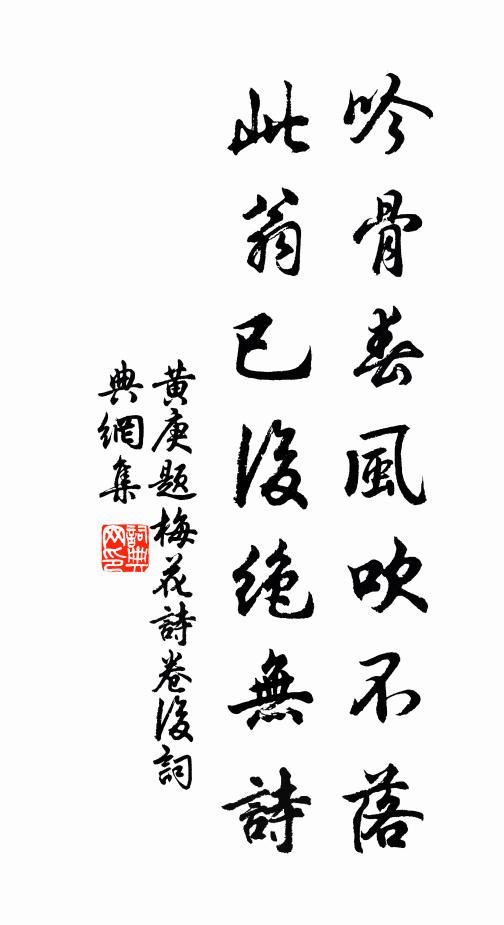 吟骨春風吹不落
此翁已後絶無詩
黃庚題梅花詩卷後詞
典網集
詞典
网印